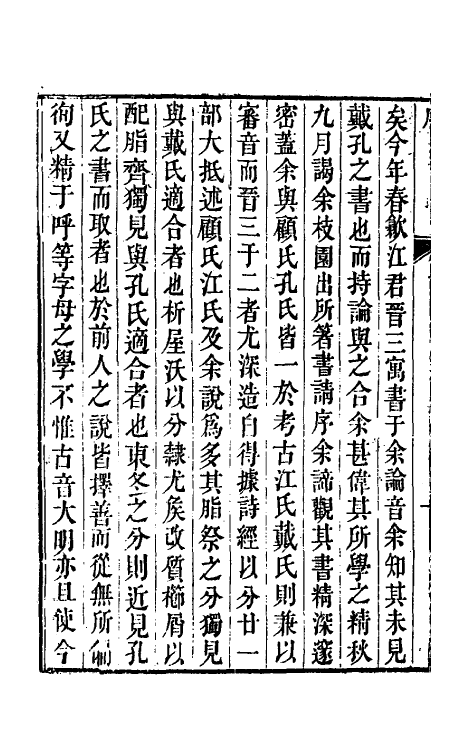 矣今年春歙江君晉三寓書于余論音余知其未見
戴孔之書也而持論與之合余甚偉其所學之精秋
九月謁余枝園出所箸書請序余諦觀其書精深邃
密蓋余與顧氏孔氏皆一於考古江氏戴氏則兼以
審音而晉三于二者尤深造自得據詩經以分廿一
部大抵述顧氏江氏及余說爲多其脂祭之分獨見
與戴氏適合者也析屋沃以分隸尤矦改質櫛屑以
配脂齊獨見與孔氏適合者也東冬之分則近見孔
氏之書而取者也於前人之說皆擇善而從無所偏
徇又精于呼等字母之學不惟古音大明亦且使今